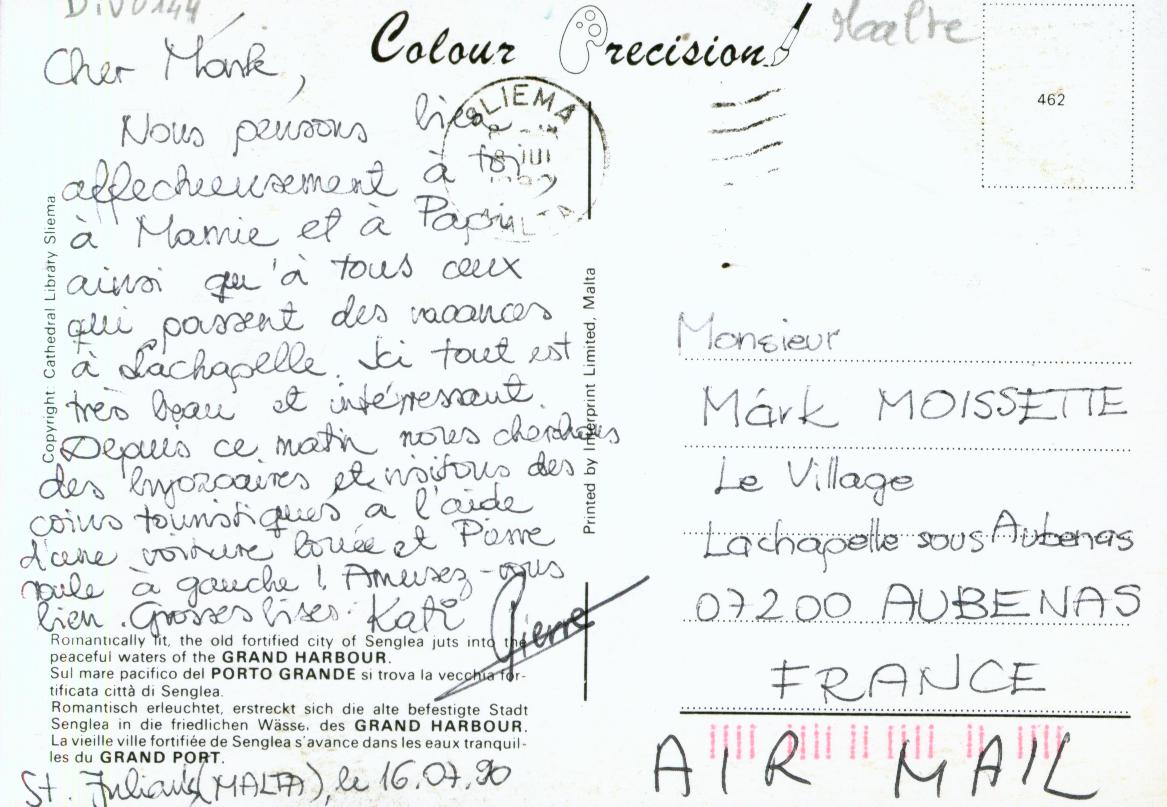 DIV0144
Colour Precision
Maalte
462
SLIEMA
Cher Márk,
Nous pensons bien
affectueusement à toi,
à Mamie et à Papi
ainsi qu'à tous ceux
qui passent des vacances
à Lachapelle. Ici tout est
très beau et intérressant.
Depuis ce matin nous cherchons
des byozoaires et visitons des
coins touristiques à l'aide
d'une voiture louée et Pierre
roule à gauche ! Amusez-vous
bien. Grosses bises. Kati
Pierre
Romantically lit, the old fortified city of Senglea juts into the
peaceful waters of the GRAND HARBOUR.
Sul mare pacifico del PORTO GRANDE si trova la vecchia for-
tificata città di Senglea.
Romantisch erleuchtet, erstreckt sich die alte befestigte Stadt
Senglea in die friedlichen Wässe. des GRAND HARBOUR.
La vieille ville fortifiée de Senglea s'avance dans les eaux tranquil-
les du GRAND PORT.
St. Julian's (MALTA), le 16.07.90
Copyright: Cathedral Library Sliema
Printed by Interprint Limited, Malta
Monsieur
Márk MOISSETTE
Le Village
Lachapelle sous Aubenas
07200 AUBENAS
FRANCE
AIR MAIL